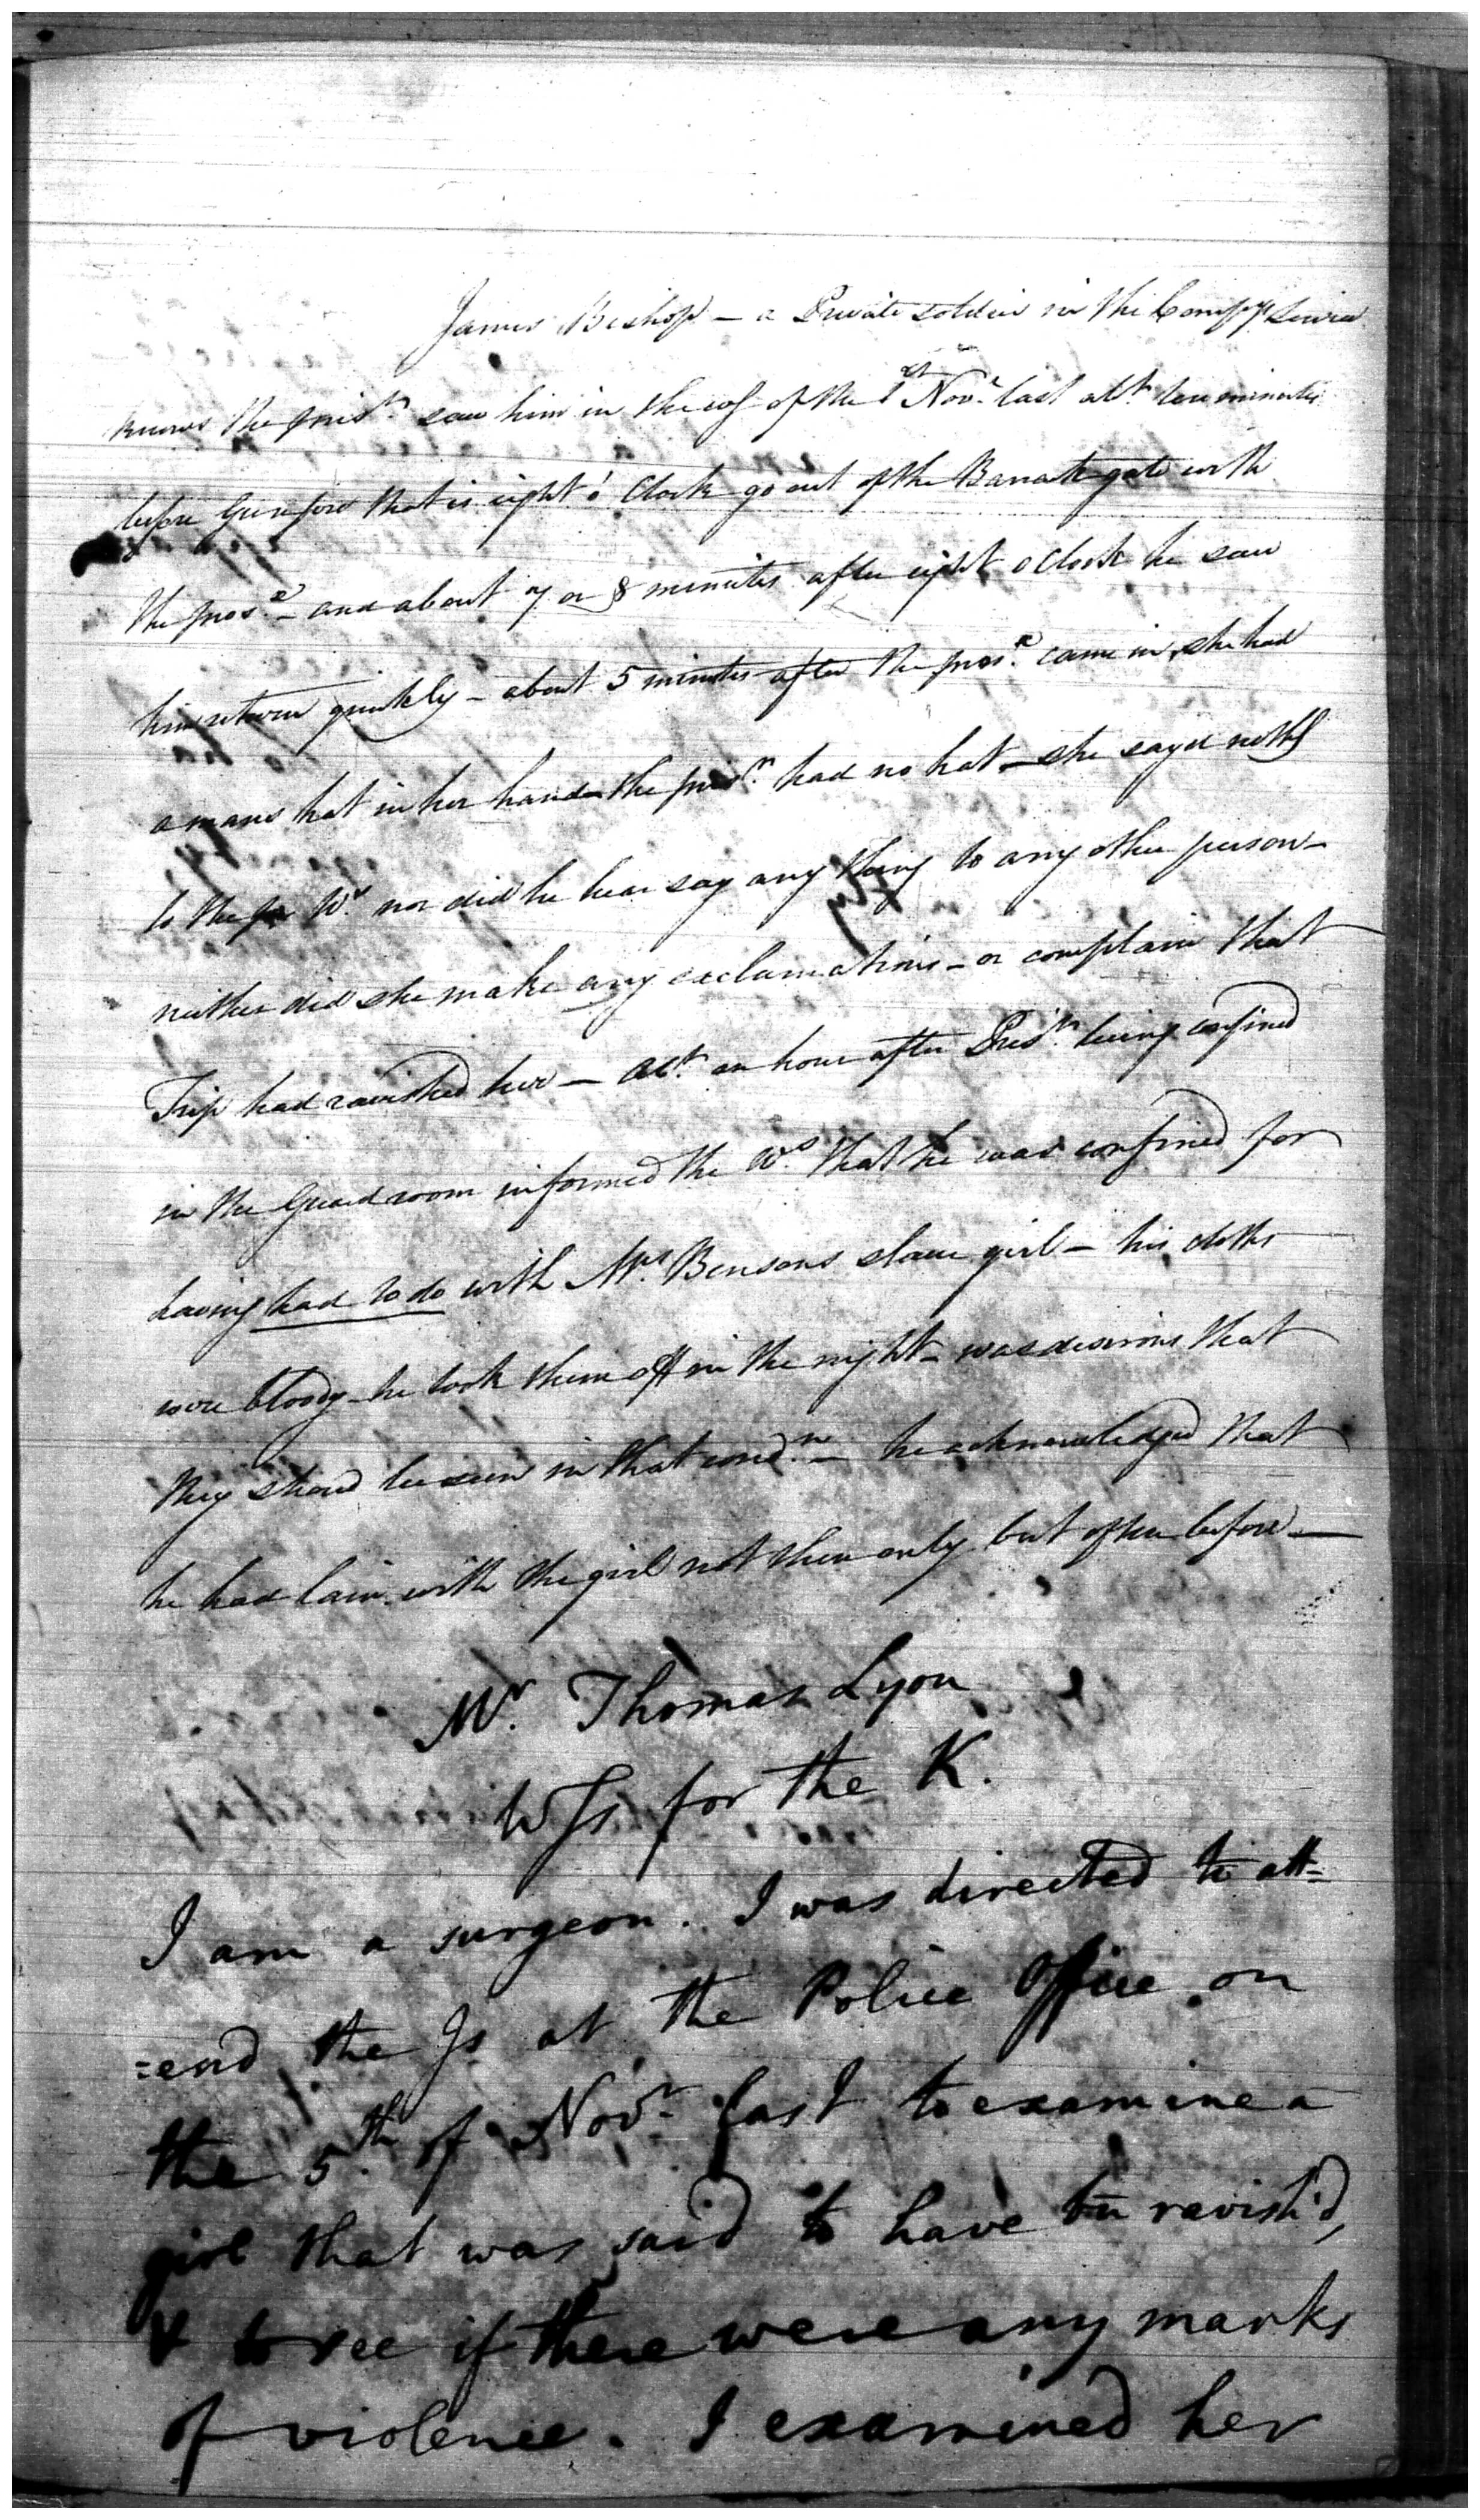 James Bishop – a Private soldier in the Comp.ys Service
knows the pris.r saw him in the ev.g of the 1st Nov.r last ab.t ten minutes
before Gunfire that is eight o' Clock go out of the Barrack gate with
the pros.x – and about 7 or 8 minutes after eight o Clock he saw
him return quickly – about 5 minutes after the pros.x came in, she had
a mans hat in her hand – the pris.r had no hat – she sayd noth.g
to the W.s nor did he hear say any thing to any other person –
neither did she make any exclamations – or complain that
Trip had ravished her – ab.t an hour after Pris.r being confined
in the Guard room informed the W.s that he was confined for
having had to do with Mrs. Bensons slave girl – his cloths
were bloody – he took them off in the night – was desirous that
they shoud be seen in that cond.n – he acknowledged that
he had lain with the girl not then only but often before –
Mr. Thomas Lyon
Wss for the K.
I am a surgeon. I was directed to att=
=end the Js at the Police Office on
the 5.th of Nov.r last to examine a
girl that was said to have bn ravish'd,
& to see if there were any marks
of violence. I examined her